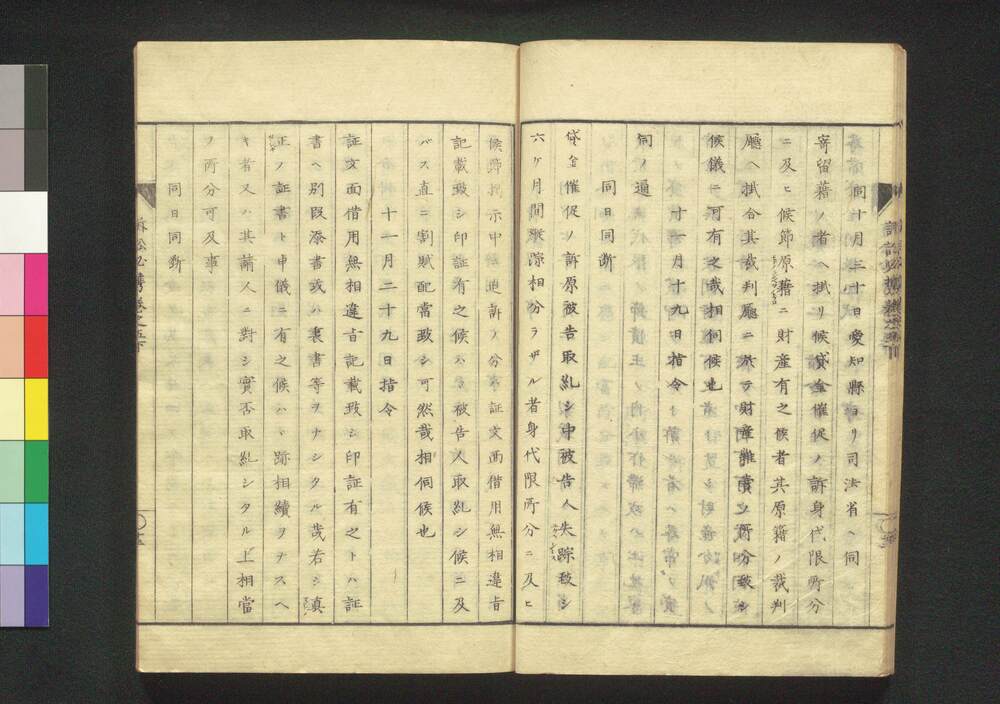 同十月三十日愛知縣ヨリ司法省ヘ伺
寄留藉ノ者ヘ掛リ候貸金催促ノ訴身代限所分
ニ及ヒ候節原藉ニ財産有之候者其原藉ノ裁判
廳ヘ掛合其裁判廳ニ於テ財産糶賣ノ所分致シ
候儀ニ可有之哉相伺候也
十一月十九日指令
伺ノ通
同日同斷
貸金催促ノ訴原被告取糺シ中被告人失踪致シ
六ケ月間蹤跡相分ラザル者身代限所分ニ及ヒ
候節揭示中他追訴ノ分ハ証文面借用無相違旨
記載致シ印証有之候ハヽ被告人取糺シ候ニ及
バス直ニ割賦配當致シ可然哉相伺候也
十一月二十九日指令
証文面借用無相違旨記載致シ印証有之トハ証
書ヘ別段添書或ハ裏書等ヲナシタル哉右シ眞
正ノ証書ト申儀ニ有之候ハヽ跡相續ヲナスヘ
キ者又ハ其請人ニ對シ實否取糺シタル上相當
ノ所分可及事
同日同斷
訴訟必攜卷之五下